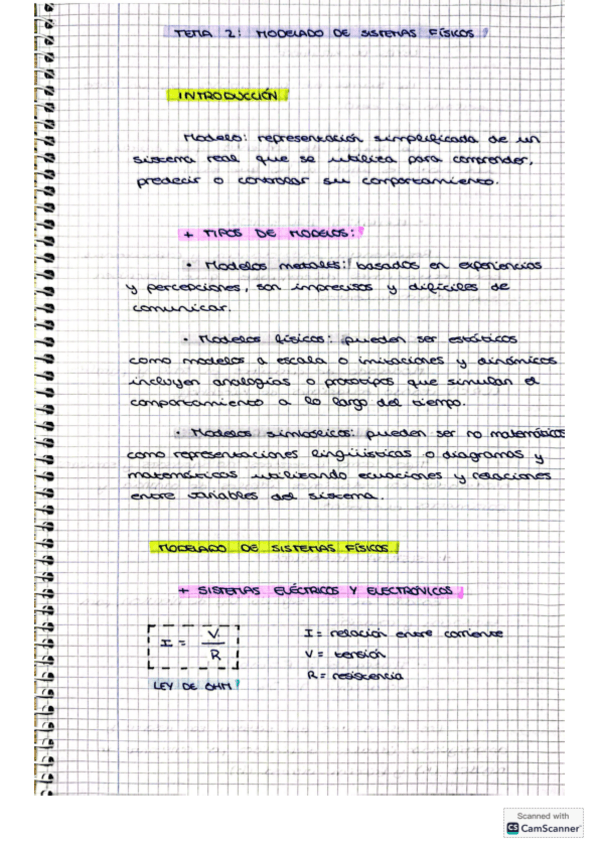 TEMA 2: MODELADO DE SISTEMAS FÍSICOS
INTRODUCCIÓN
Modelo: representación simplificada de un
sistema real que se utiliza para comprender,
predecir o controlar su comportamiento.
+ TIPOS DE MODELOS:
• Modelos mentales: basados en experiencias
y percepciones, son imprecisos y difíciles de
comunicar.
• Modelos físicos: pueden ser estáticos
como modelos a escala o imitaciones y dinámicos
incluyen analogías o prototipos que simulan el
comportamiento a lo largo del tiempo.
• Modelos simbólicos: pueden ser no matemáticos
como representaciones lingüísticas o diagramas y
matemáticos utilizando ecuaciones y relaciones
entre variables del sistema.
MODELADO DE SISTEMAS FÍSICOS
+ SISTEMAS ELÉCTRICOS Y ELECTRÓNICOS
I = V / R
I = relación entre corriente
V = tensión
R = resistencia
LEY DE OHM
Scanned with
CS CamScanner